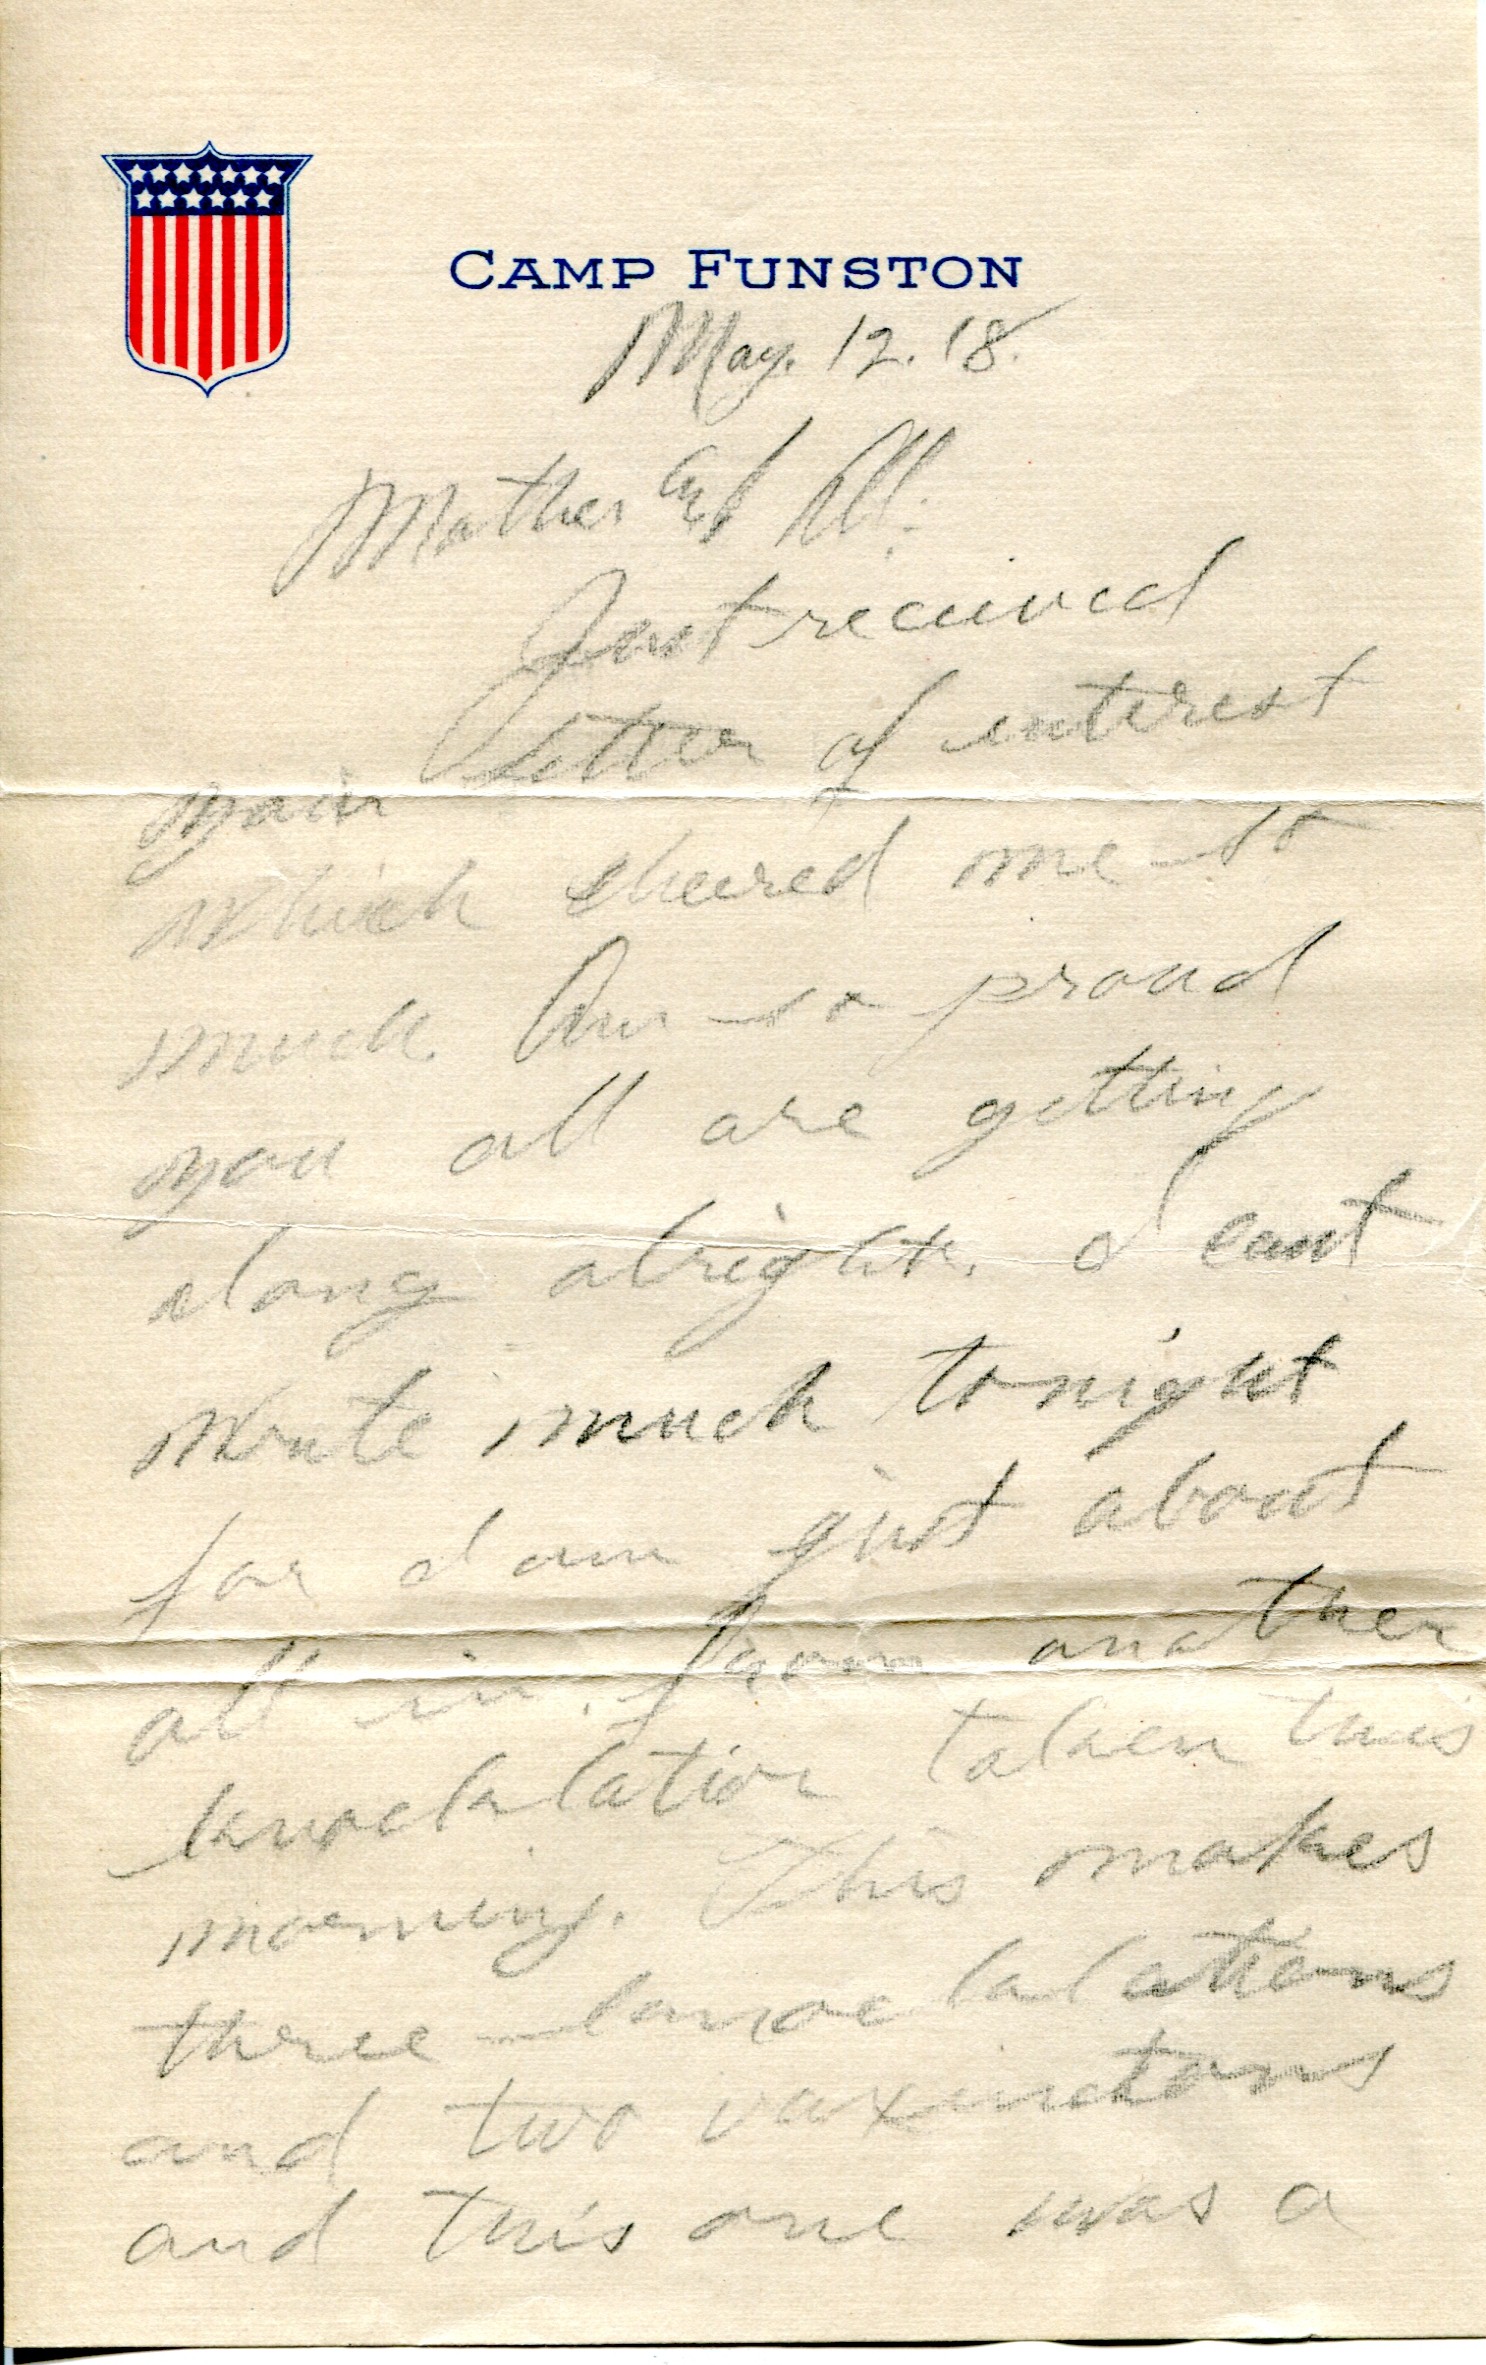 CAMP FUNSTON
May. 12. 18.
Mother and All:
Just received
your letter of interest
which cheered me so
much. Am so proud
you all are getting
along alright. I cant
write much tonight
for I am just about
all in from another
taken this
morning. This makes
three
and two
and this one was a